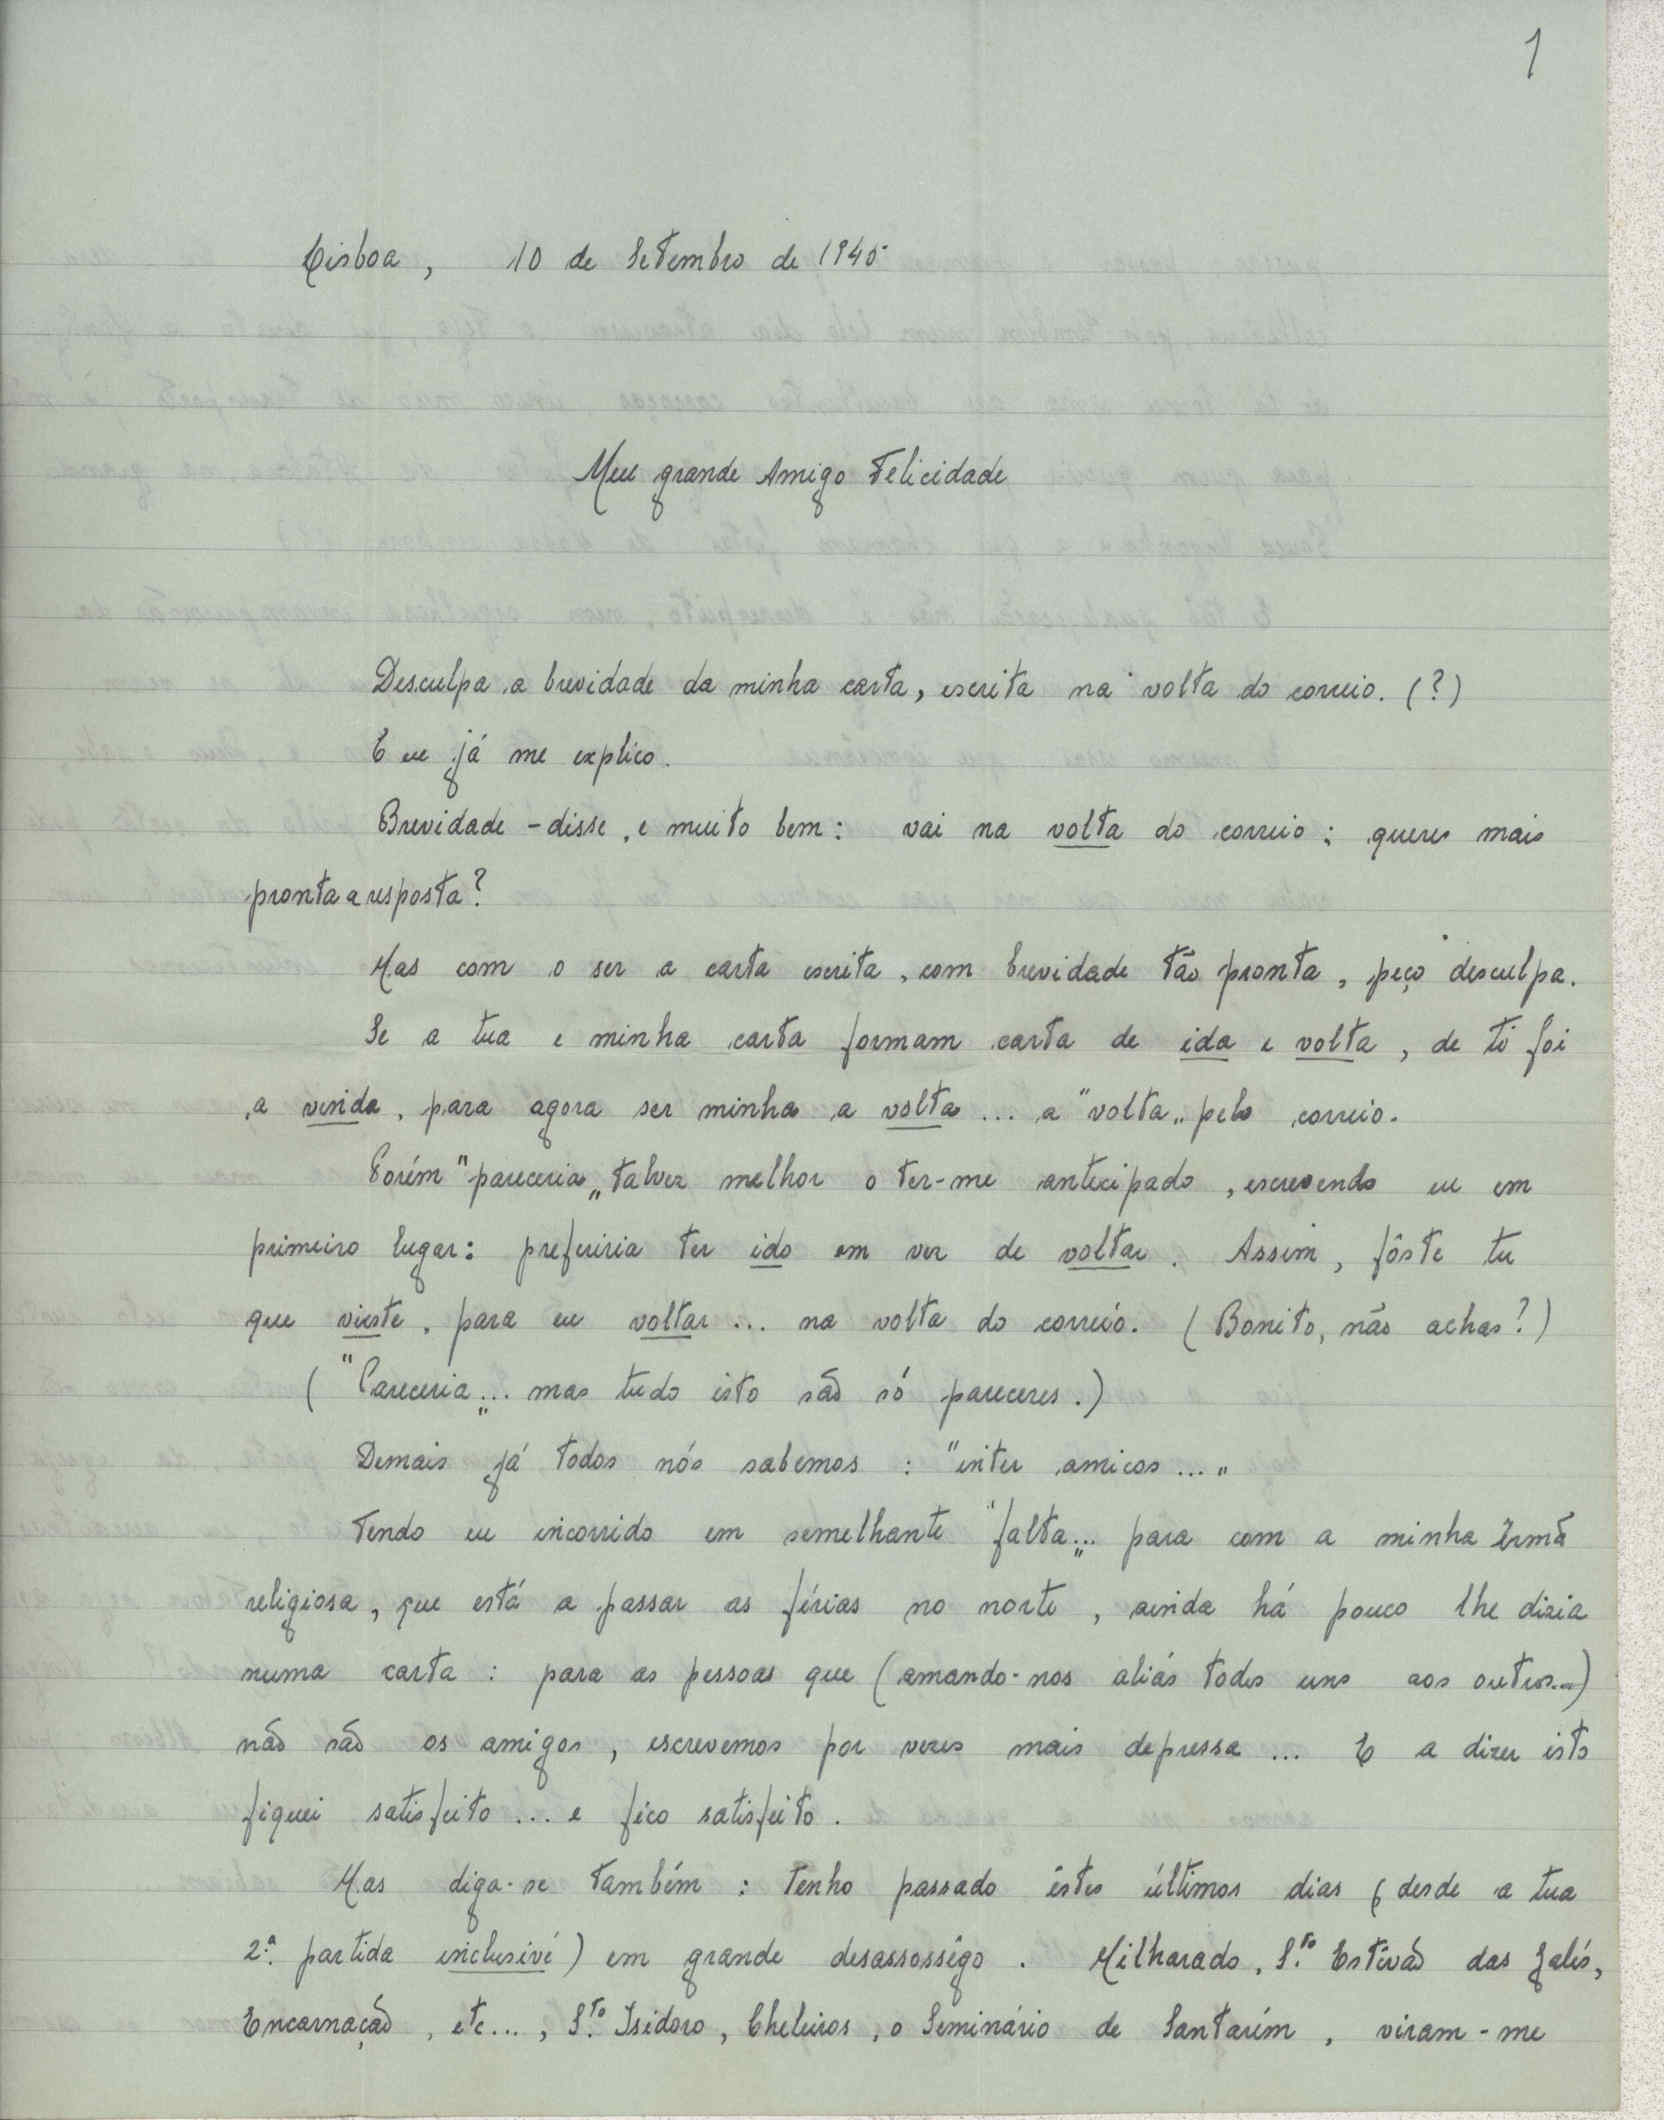 1
Lisboa, 10 de Setembro de 1945
Meu grande Amigo Felicidade
Desculpa a brevidade da minha carta, escrita na volta do correio. (?)
E eu já me explico.
Brevidade - disse, e muito bem: vai na volta do correio: queres mais
pronta a resposta?
Mas com o ser a carta escrita, com brevidade tão pronta, peço desculpa.
Se a tua e minha carta formam carta de ida e volta, de ti foi
a vinda, para agora ser minha a volta... a "volta" pelo correio.
Porém "pareceria" talvez melhor o ter-me antecipado, escrevendo eu em
primeiro lugar: preferiria ter ido em vez de voltar. Assim, fôste tu
que vieste, para eu voltar... na volta do correio. (Bonito, não achas?)
("Pareceria"... mas tudo isto são só pareceres.)
Demais já todos nós sabemos: "inter amicos..."
Tendo eu incorrido em semelhante "falta"... para com a minha Irmã
religiosa, que está a passar as férias no norte, ainda há pouco lhe dizia
numa carta: para as pessoas que (amando-nos aliás todos uns aos outros...)
não são os amigos, escrevemos por vezes mais depressa... E a dizer isto
fiquei satisfeito... e fico satisfeito.
Mas diga-se também: tenho passado êstes últimos dias (desde a tua
2.ª partida inclusivé) em grande desassossêgo. Milharado, S.to Estêvão das Galés,
Encarnação, etc..., S.to Isidoro, Cheleiros, o Seminário de Santarém, viram-me